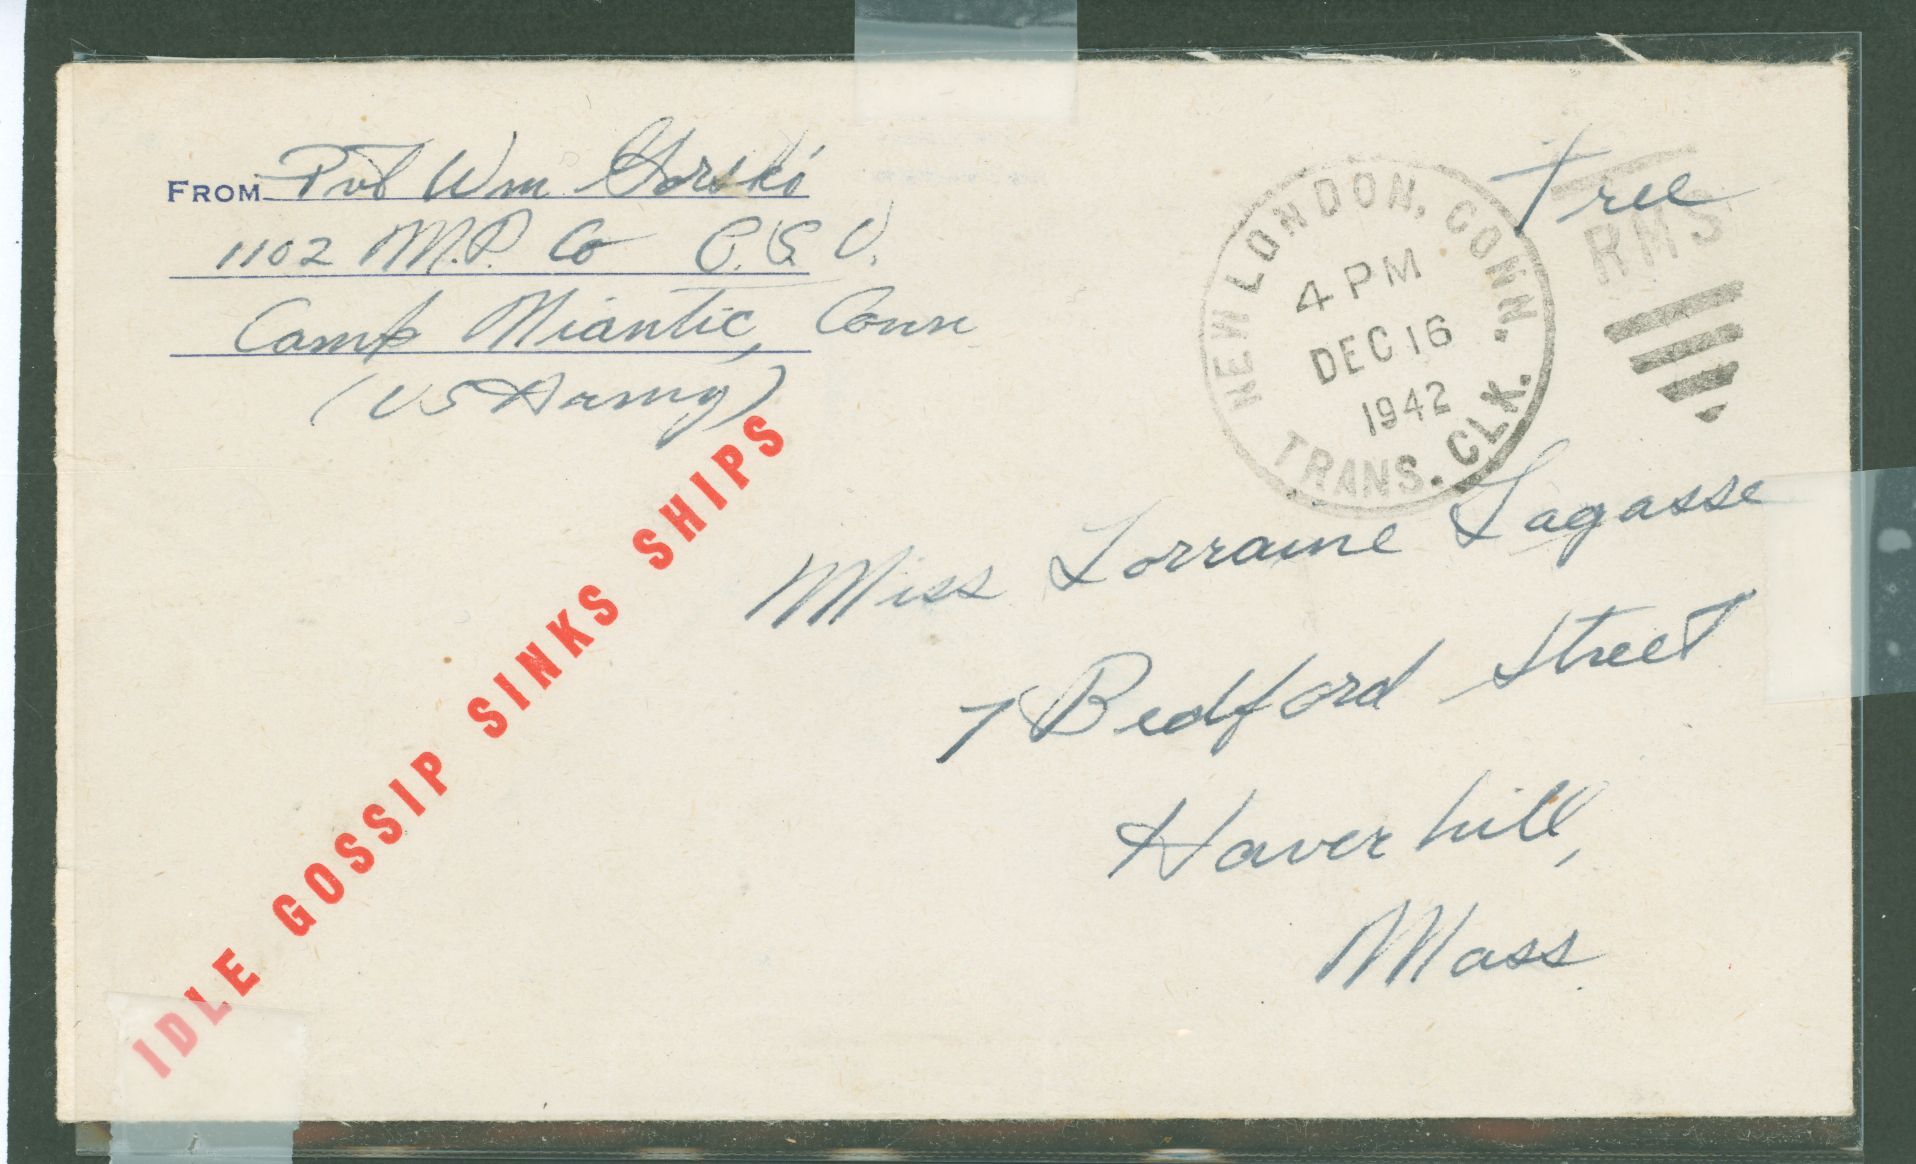 FROM Pvt Wm Gorski
1102 M.P. Co C.S.U.
Camp Niantic, Conn
(US Army)
Free
NEW LONDON, CONN.
4 PM
DEC 16
1942
TRANS. CLK.
RMS
IDLE GOSSIP SINKS SHIPS
Miss Lorraine Lagasse
7 Bedford Street
Haverhill,
Mass.